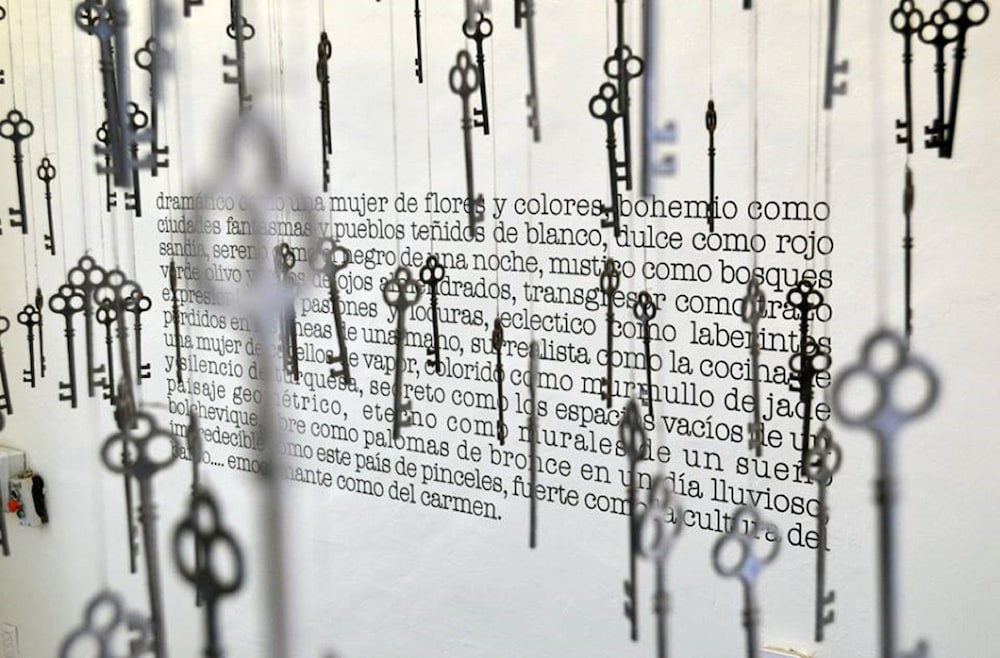 dramático como una mujer de flores y colores, bohemio como
ciudades fantasmas y pueblos teñidos de blanco, dulce como rojo
sandía, sereno como negro de una noche, mistico como bosques
verde olivo y de ojos almendrados, transgresor como trazo
pasiones y locuras, eclectico como laberintos
perdidos en líneas de una mano, surrealista como la cocina de
una mujer de cabellos de vapor, colorido como murmullo de jade
y silencio de turquesa, secreto como los espacios vacíos de un
paisaje geométrico, eterno como murales de un sueño
bolchevique, como palomas de bronce en un día lluvioso,
impredecible como este país de pinceles, fuerte como la cultura del
como del carmen.